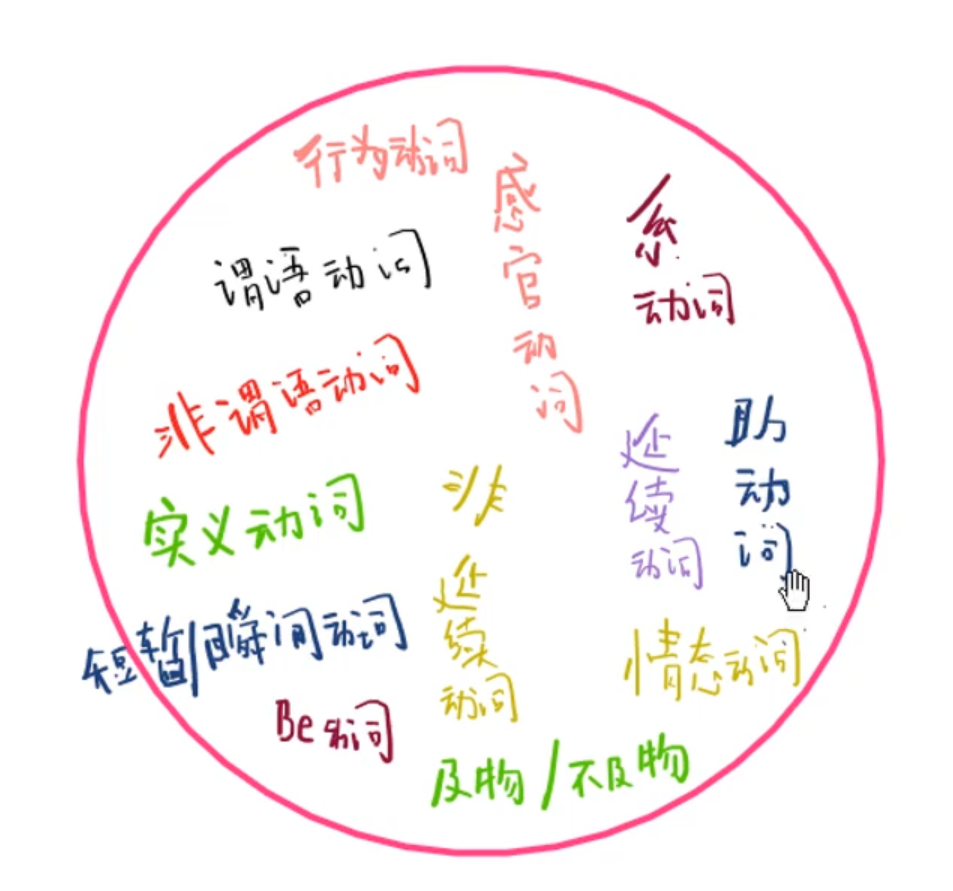 行为动词
感官动词
系动词
谓语动词
非谓语动词
助动词
延续动词
实义动词
非延续动词
短暂/瞬间动词
情态动词
Be动词
及物/不及物